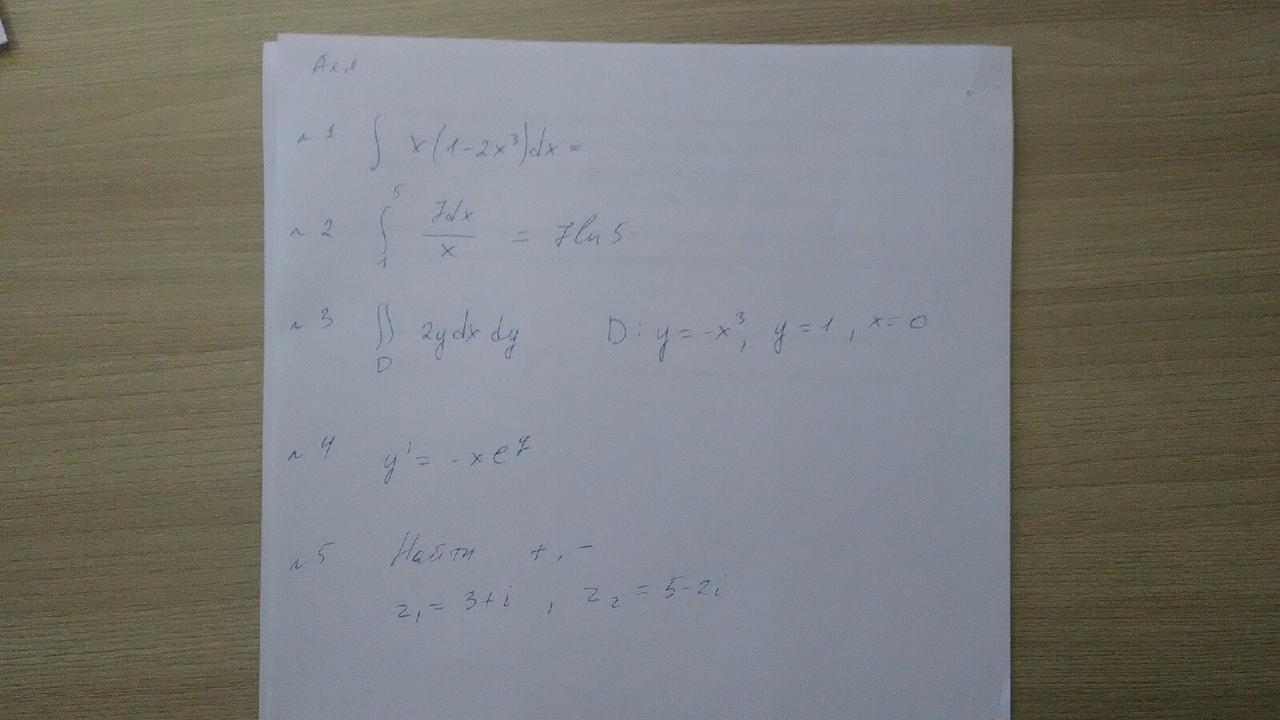 Аля
№1 ∫ x(1-2x³)dx =
№2 ∫₁⁵ 7dx/x = 7ln5
№3 ∬_D 2y dx dy D: y = -x³, y = 1, x = 0
№4 y' = -xe^y
№5 Найти +, -
z₁ = 3+i, z₂ = 5-2i